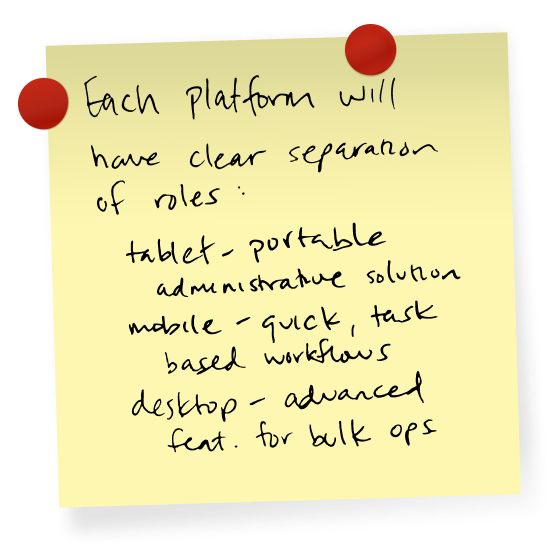 Each platform will
have clear separation
of roles:
tablet - portable
administrative solution
mobile - quick, task
based workflows
desktop - advanced
feat. for bulk ops